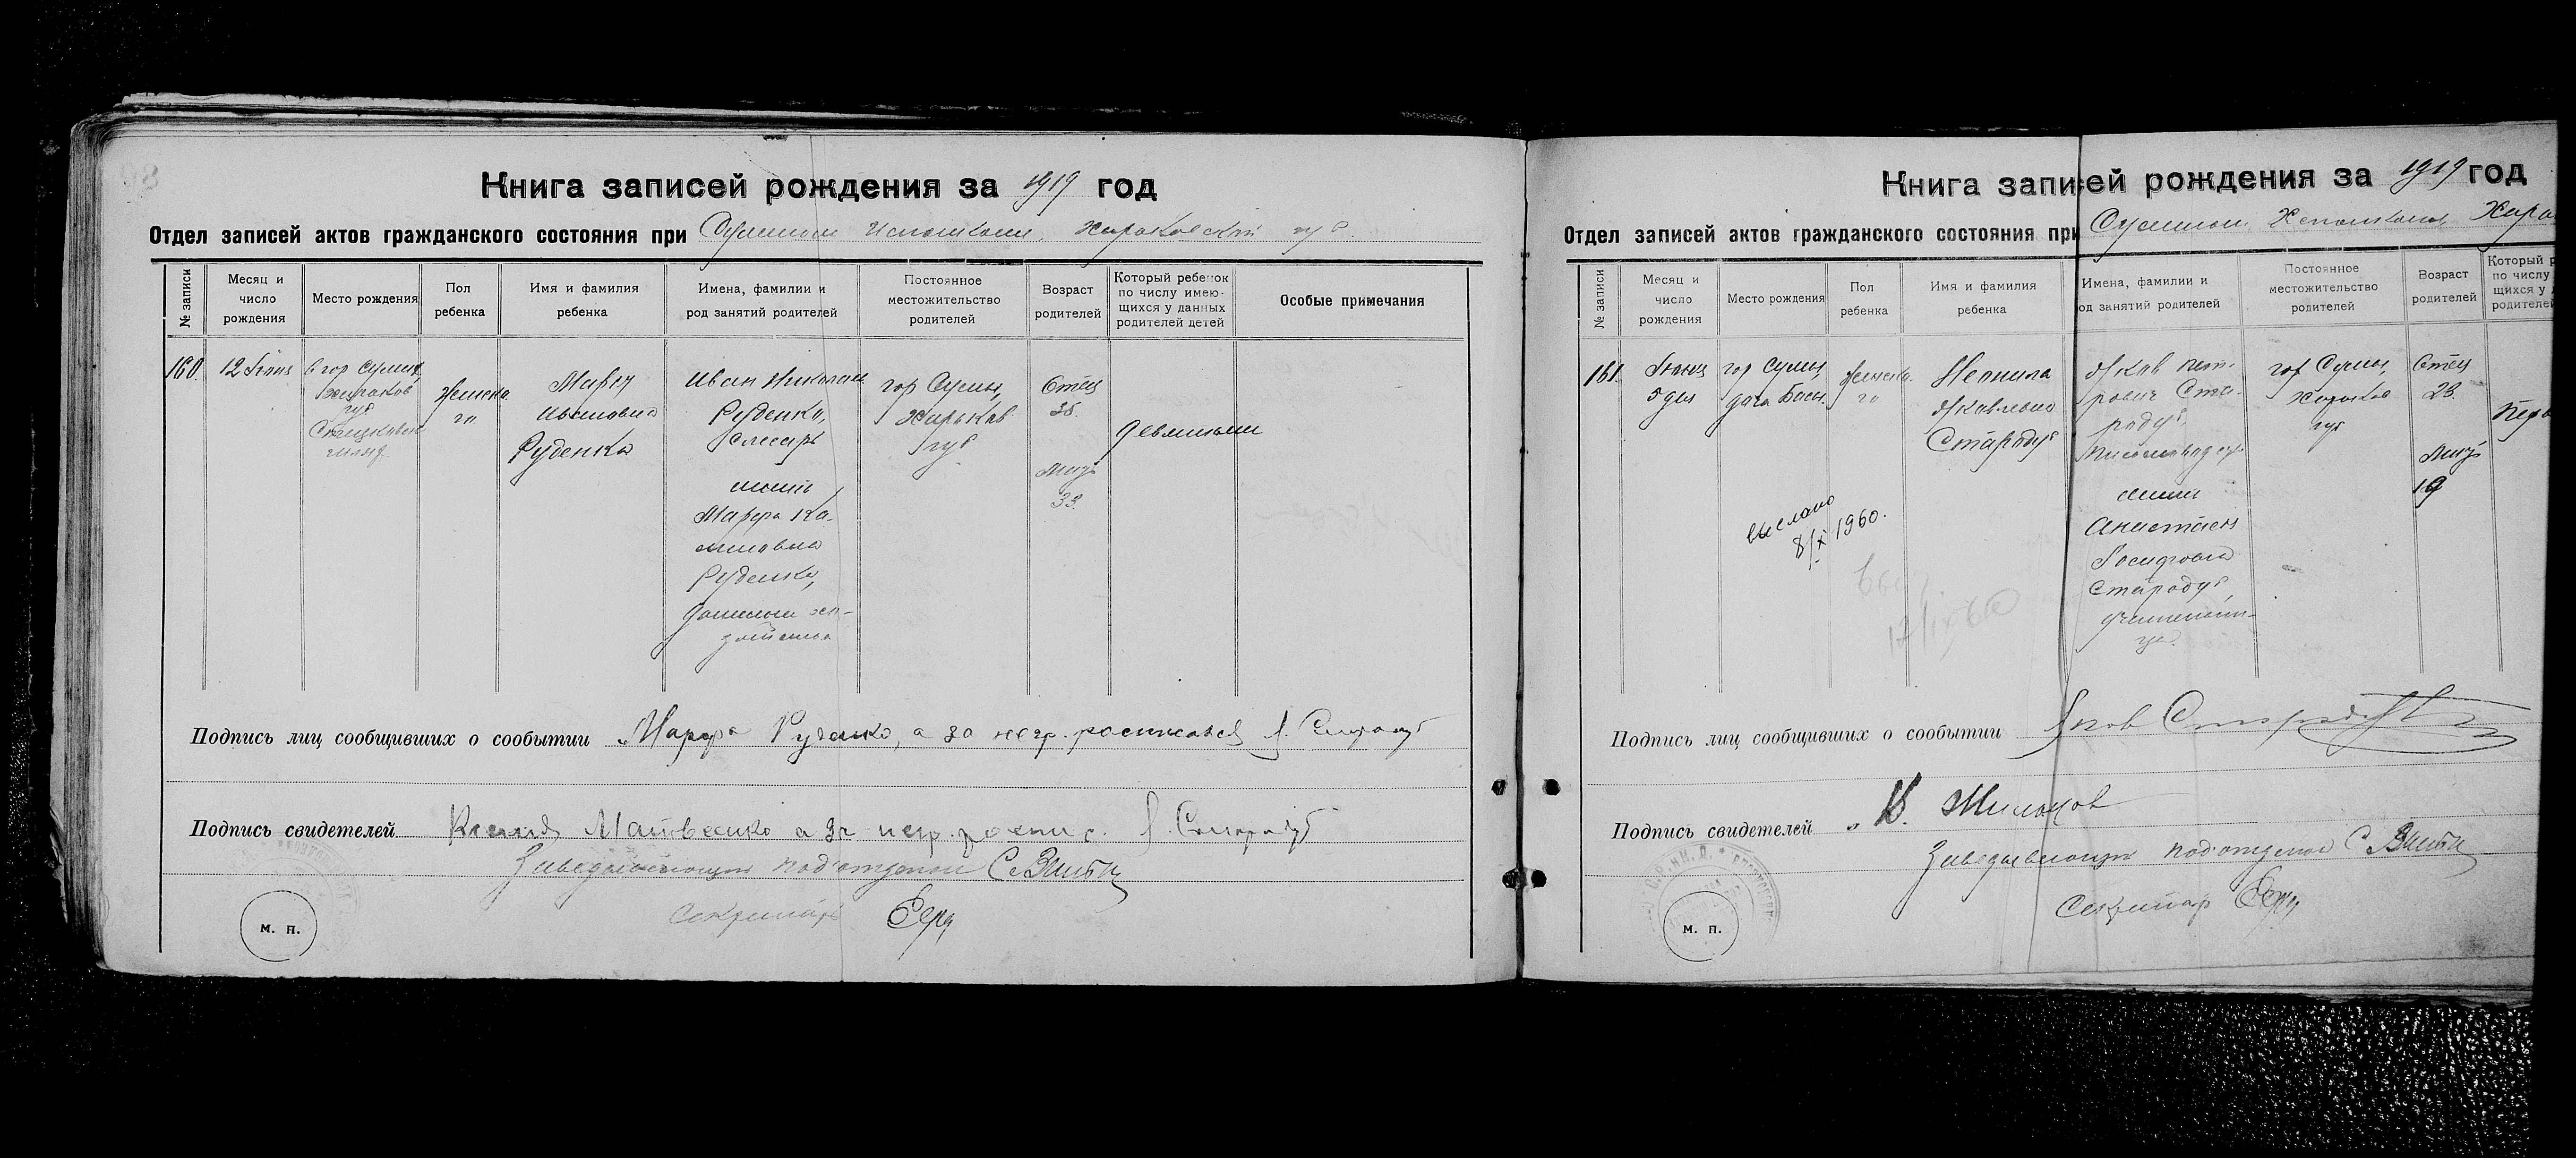 Книга записей рождения за 1919 год
Отдел записей актов гражданского состояния при Сумском Исполкоме, Харьковской губ.
№ записи
Месяц и число рождения
Место рождения
Пол ребенка
Имя и фамилия ребенка
Имена, фамилии и род занятий родителей
Постоянное местожительство родителей
Возраст родителей
Который ребенок по числу имеющихся у данных родителей детей
Особые примечания
160.
12
в гор Сумы,
Харьков
губ
Женска-
го
Мария
Ивановна
Руденко
Иван
Руденко,
слесарь
мать
Марфа
Руденко,
гор Сумы,
Харьков
губ
Отец
Мать
33.
Подпись лиц сообщивших о сообытии Марфа Руденко, а за негр. росписался Я. Стародуб
Подпись свидетелей Матвеенко а за негр. роспис. Я. Стародуб
Заведывающий под'отделом
Секретарь
м. п.
Книга записей рождения за 1919 год
Отдел записей актов гражданского состояния при Сумском Исполкоме, Харь
№ записи
Месяц и число рождения
Место рождения
Пол ребенка
Имя и фамилия ребенка
Имена, фамилии и
од занятий родителей
Постоянное местожительство родителей
Возраст родителей
Который р
по числу
щихся у
родителей
161.
Июня
5 дня
гор Сумы,
дача
Женска-
го
Неонила
Яковлевна
Стародуб
Яков Пет-
рович Ста-
родуб,
мать
Анастасия
Иосифовна
Стародуб,
учительни-
ца.
гор Сумы,
Харьков
губ
Отец
23.
Мать
19
Перв
выслано
8/X 1960.
17/IX 60
Подпись лиц сообщивших о сообытии Яков Стародуб
Подпись свидетелей
Заведывающий под'отделом
Секретарь
м. п.